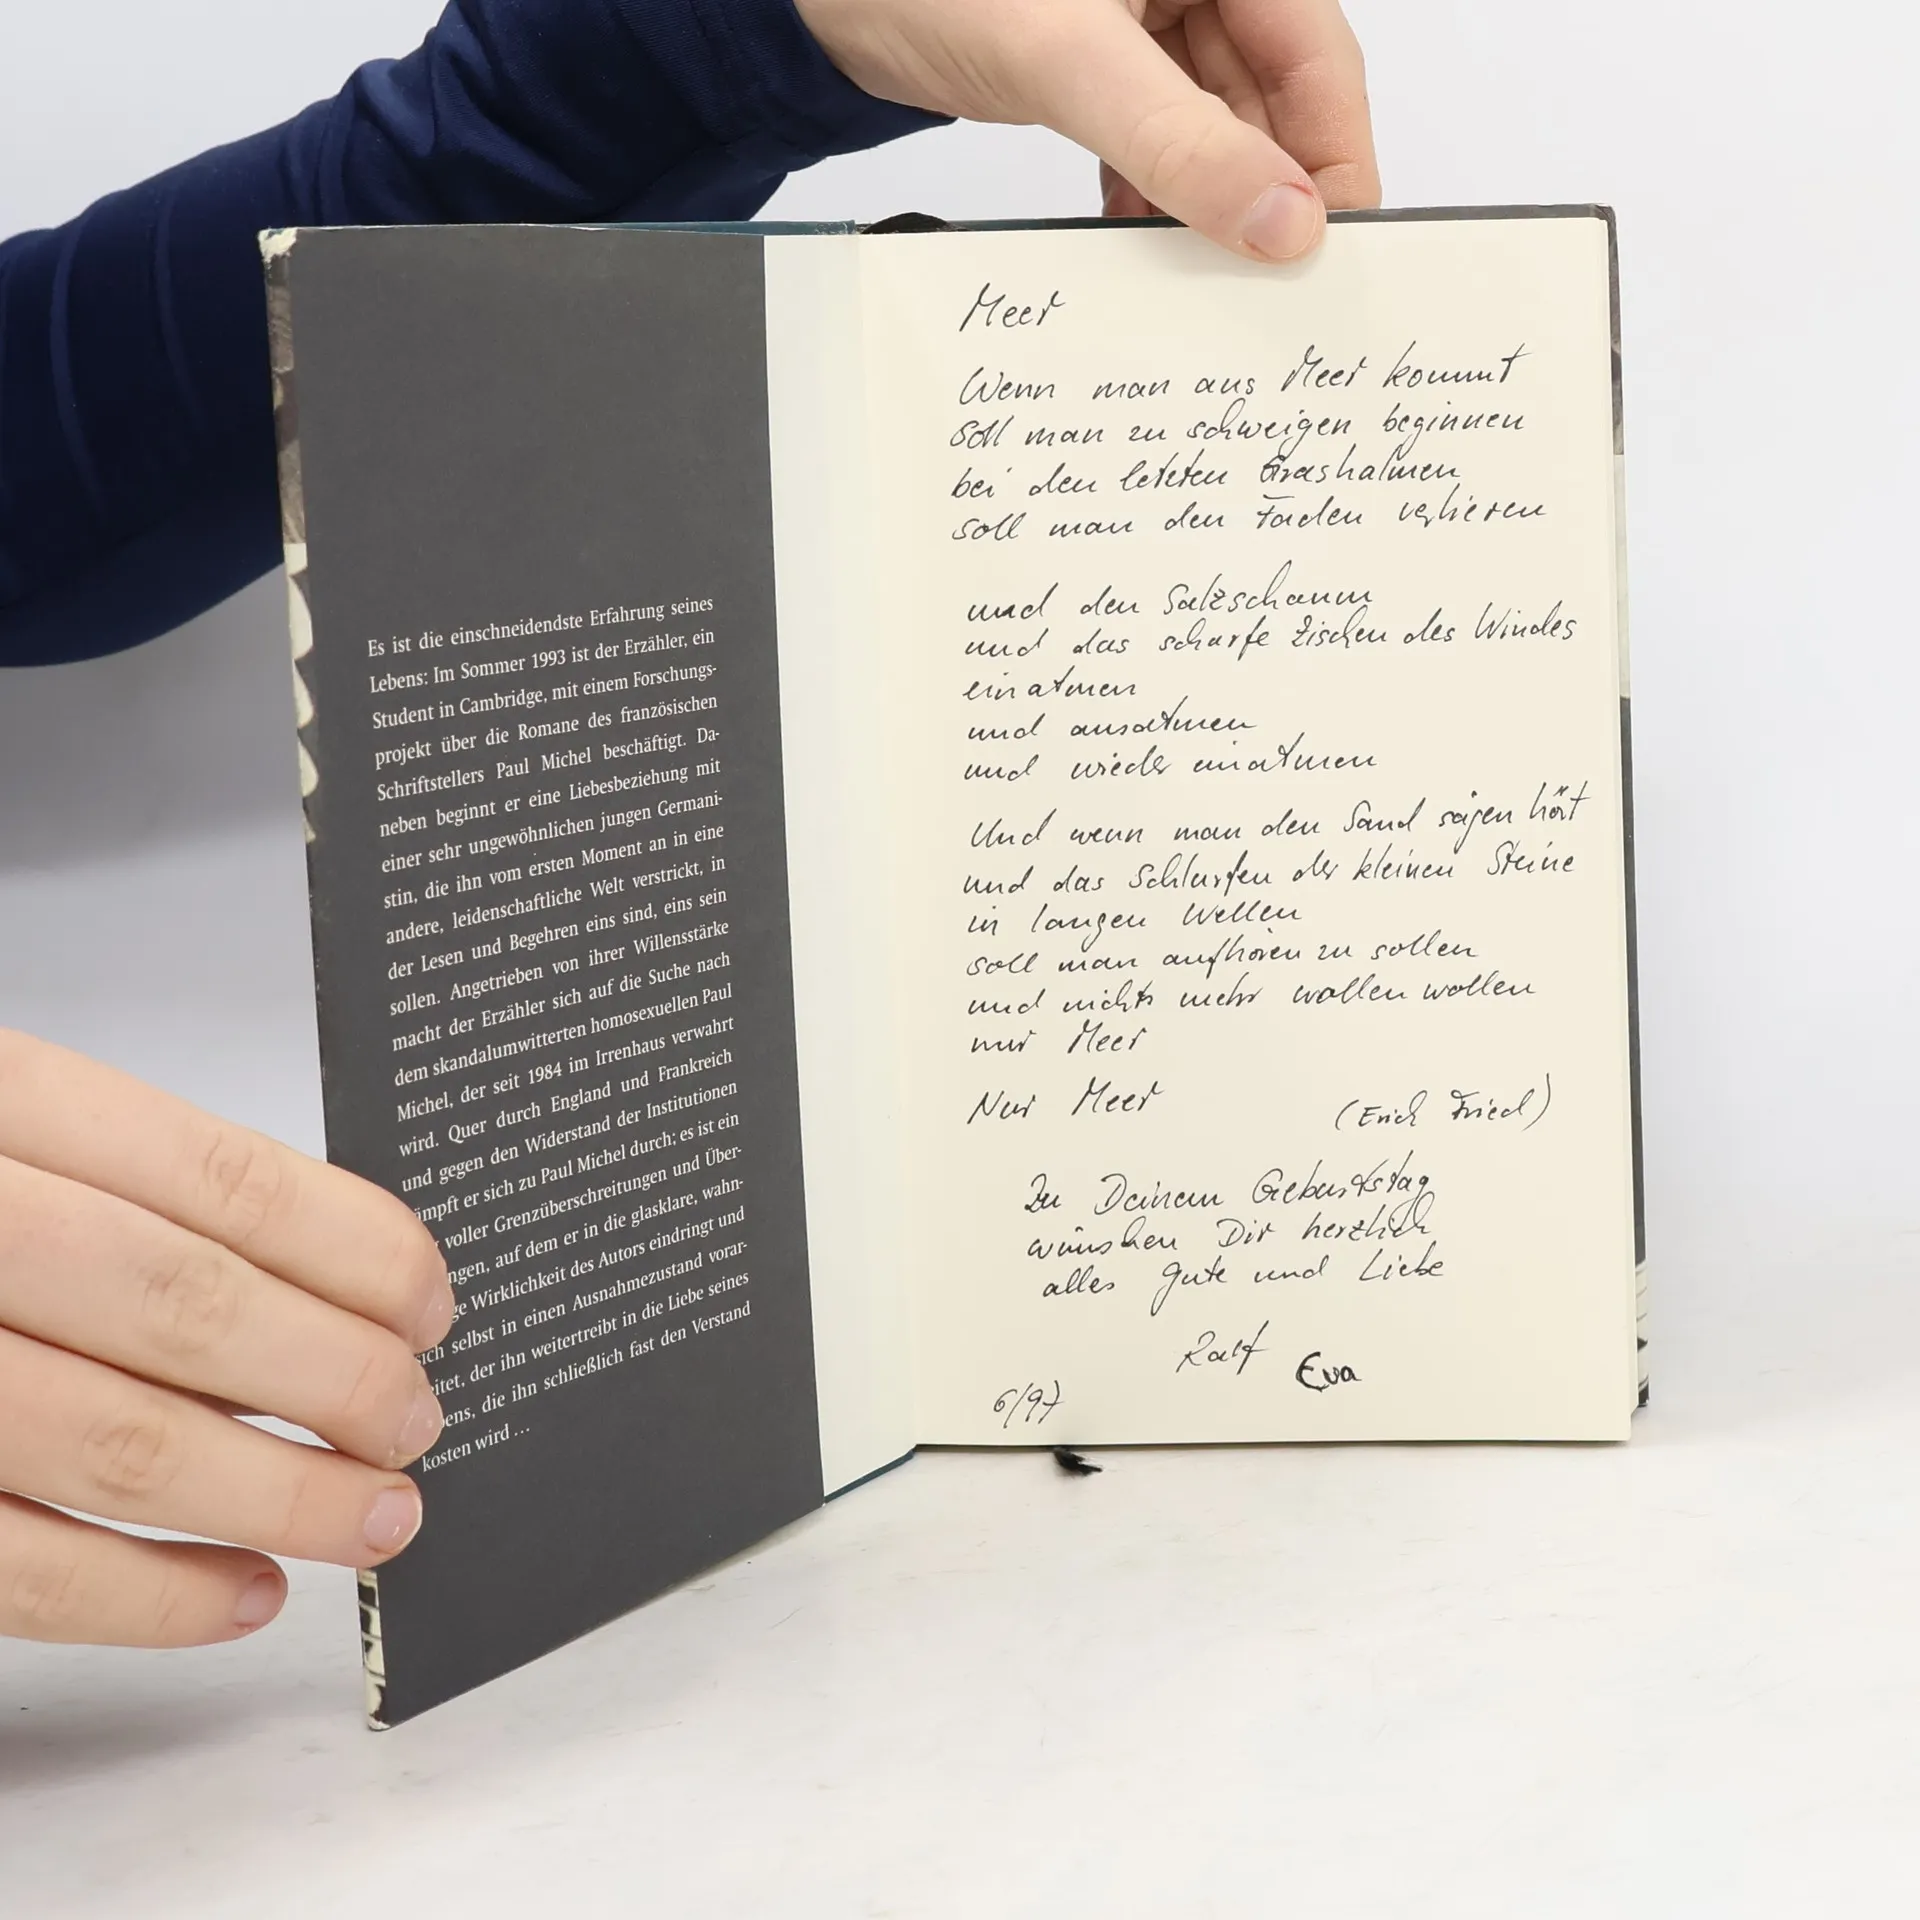 Es ist die einschneidendste Erfahrung seines
Lebens: Im Sommer 1993 ist der Erzähler, ein
Student in Cambridge, mit einem Forschungs-
projekt über die Romane des französischen
Schriftstellers Paul Michel beschäftigt. Da-
neben beginnt er eine Liebesbeziehung mit
einer sehr ungewöhnlichen jungen Germani-
stin, die ihn vom ersten Moment an in eine
andere, leidenschaftliche Welt verstrickt, in
der Lesen und Begehren eins sind, eins sein
sollen. Angetrieben von ihrer Willensstärke
macht der Erzähler sich auf die Suche nach
dem skandalumwitterten homosexuellen Paul
Michel, der seit 1984 im Irrenhaus verwahrt
wird. Quer durch England und Frankreich
und gegen den Widerstand der Institutionen
ämpft er sich zu Paul Michel durch; es ist ein
voller Grenzüberschreitungen und Über-
ngen, auf dem er in die glasklare, wahn-
ge Wirklichkeit des Autors eindringt und
sich selbst in einen Ausnahmezustand vorar-
eitet, der ihn weitertreibt in die Liebe seines
bens, die ihn schließlich fast den Verstand
kosten wird ...
Meer
Wenn man ans Meer kommt
soll man zu schweigen beginnen
bei den letzten Grashalmen
soll man den Faden verlieren
und den Salzschaum
und das scharfe Zischen des Windes
einatmen
und ausatmen
und wieder einatmen
Und wenn man den Sand sägen hört
und das Schlurfen der kleinen Steine
in langen Wellen
soll man aufhören zu sollen
und nichts mehr wollen wollen
nur Meer
Nur Meer
(Erich Fried)
Zu Deinem Geburtstag
wünschen Dir herzlich
alles Gute und Liebe
Ralf Eva
6/97